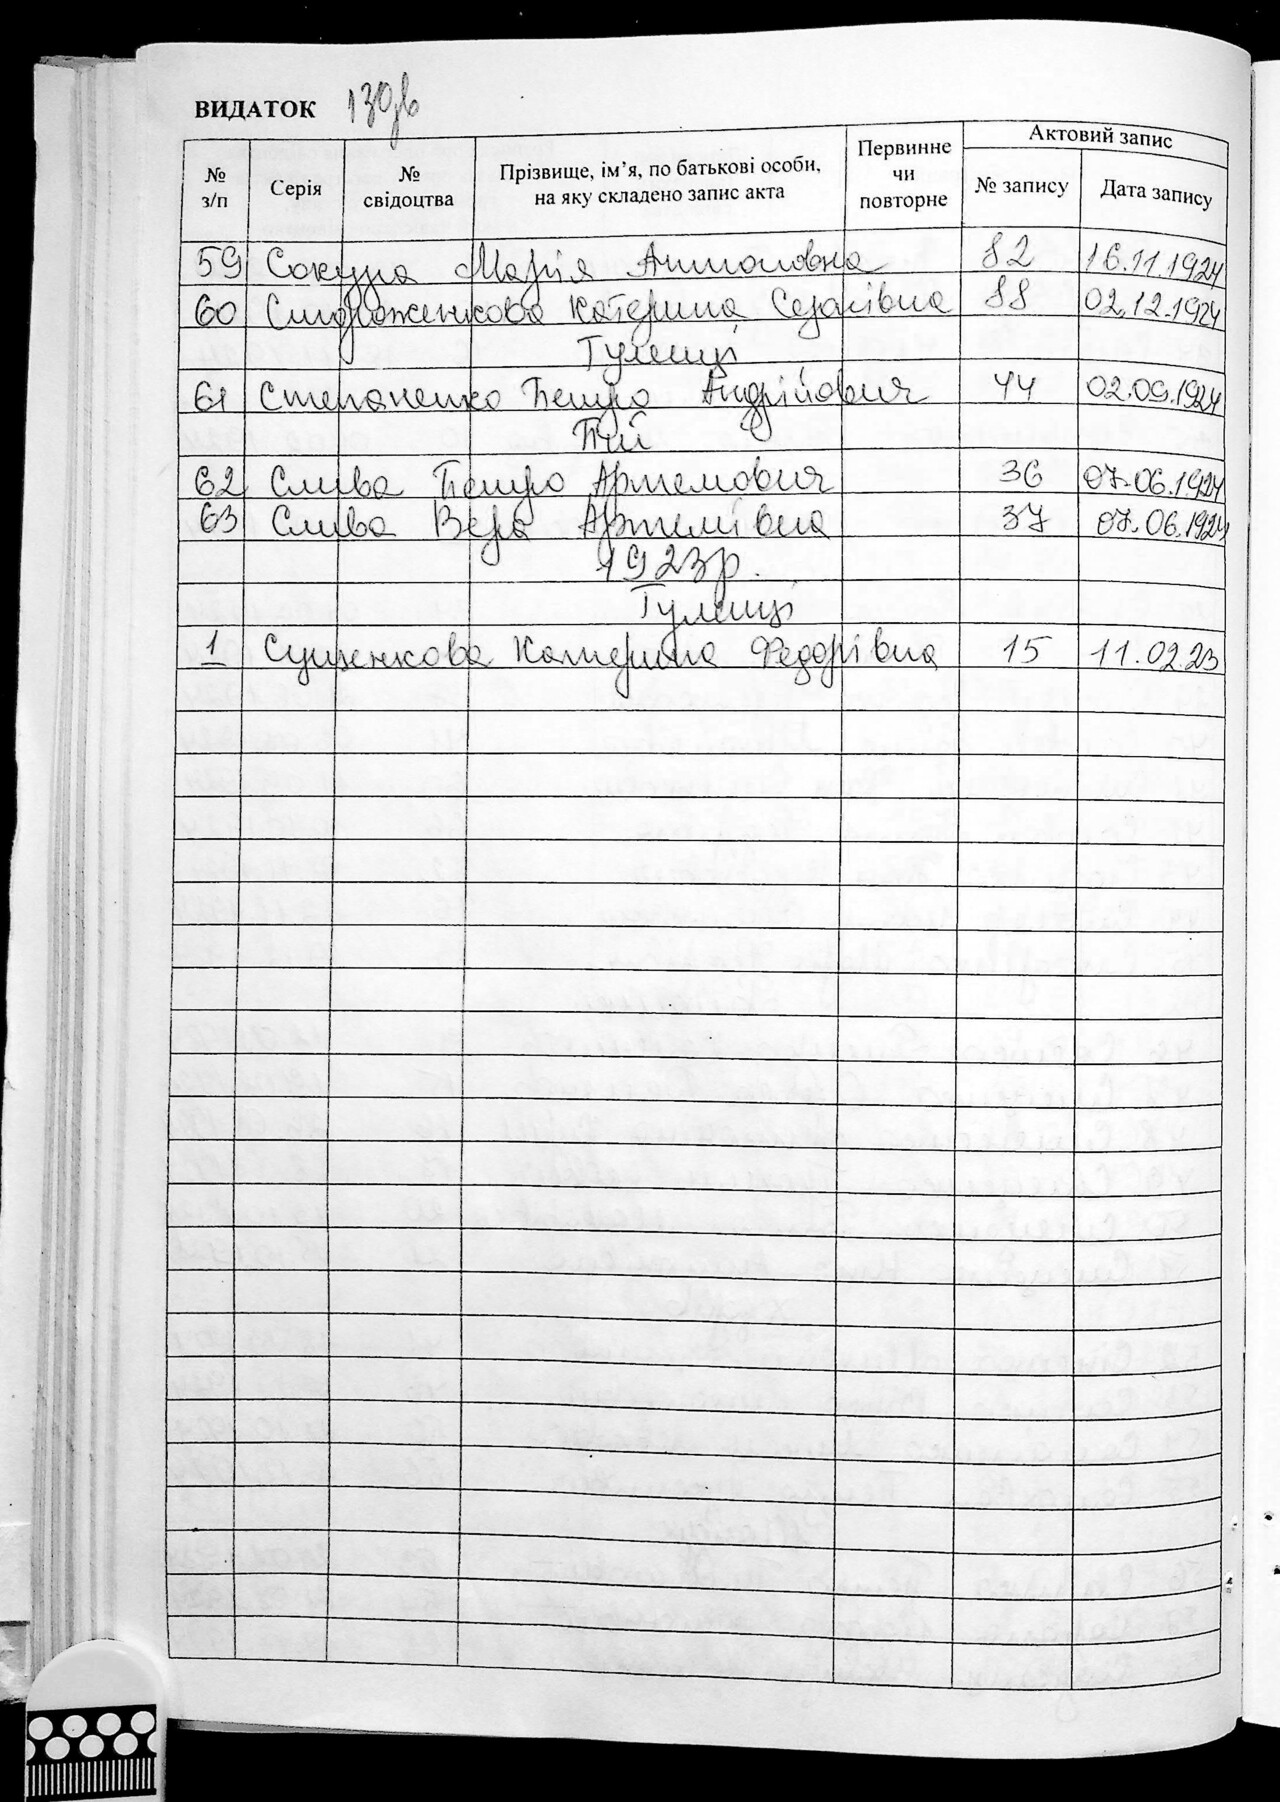 ВИДАТОК 130зв
№ з/п Серія № свідоцтва Прізвище, ім’я, по батькові особи, на яку складено запис акта Первинне чи повторне Актовий запис № запису Дата запису
59 Сокуна Марія Антоновна 82 16.11.1924
60 Катерина 88 02.12.1924
Гулищі
61 Степаненко Петро Андрійович 44 02.09.1924
Пії
62 Слива Петро Артемович 36 07.06.1924
63 Слива Вера Артемівна 37 07.06.1924
1923р.
Гулищі
1 Сущенкова Катерина Федорівна 15 11.02.23